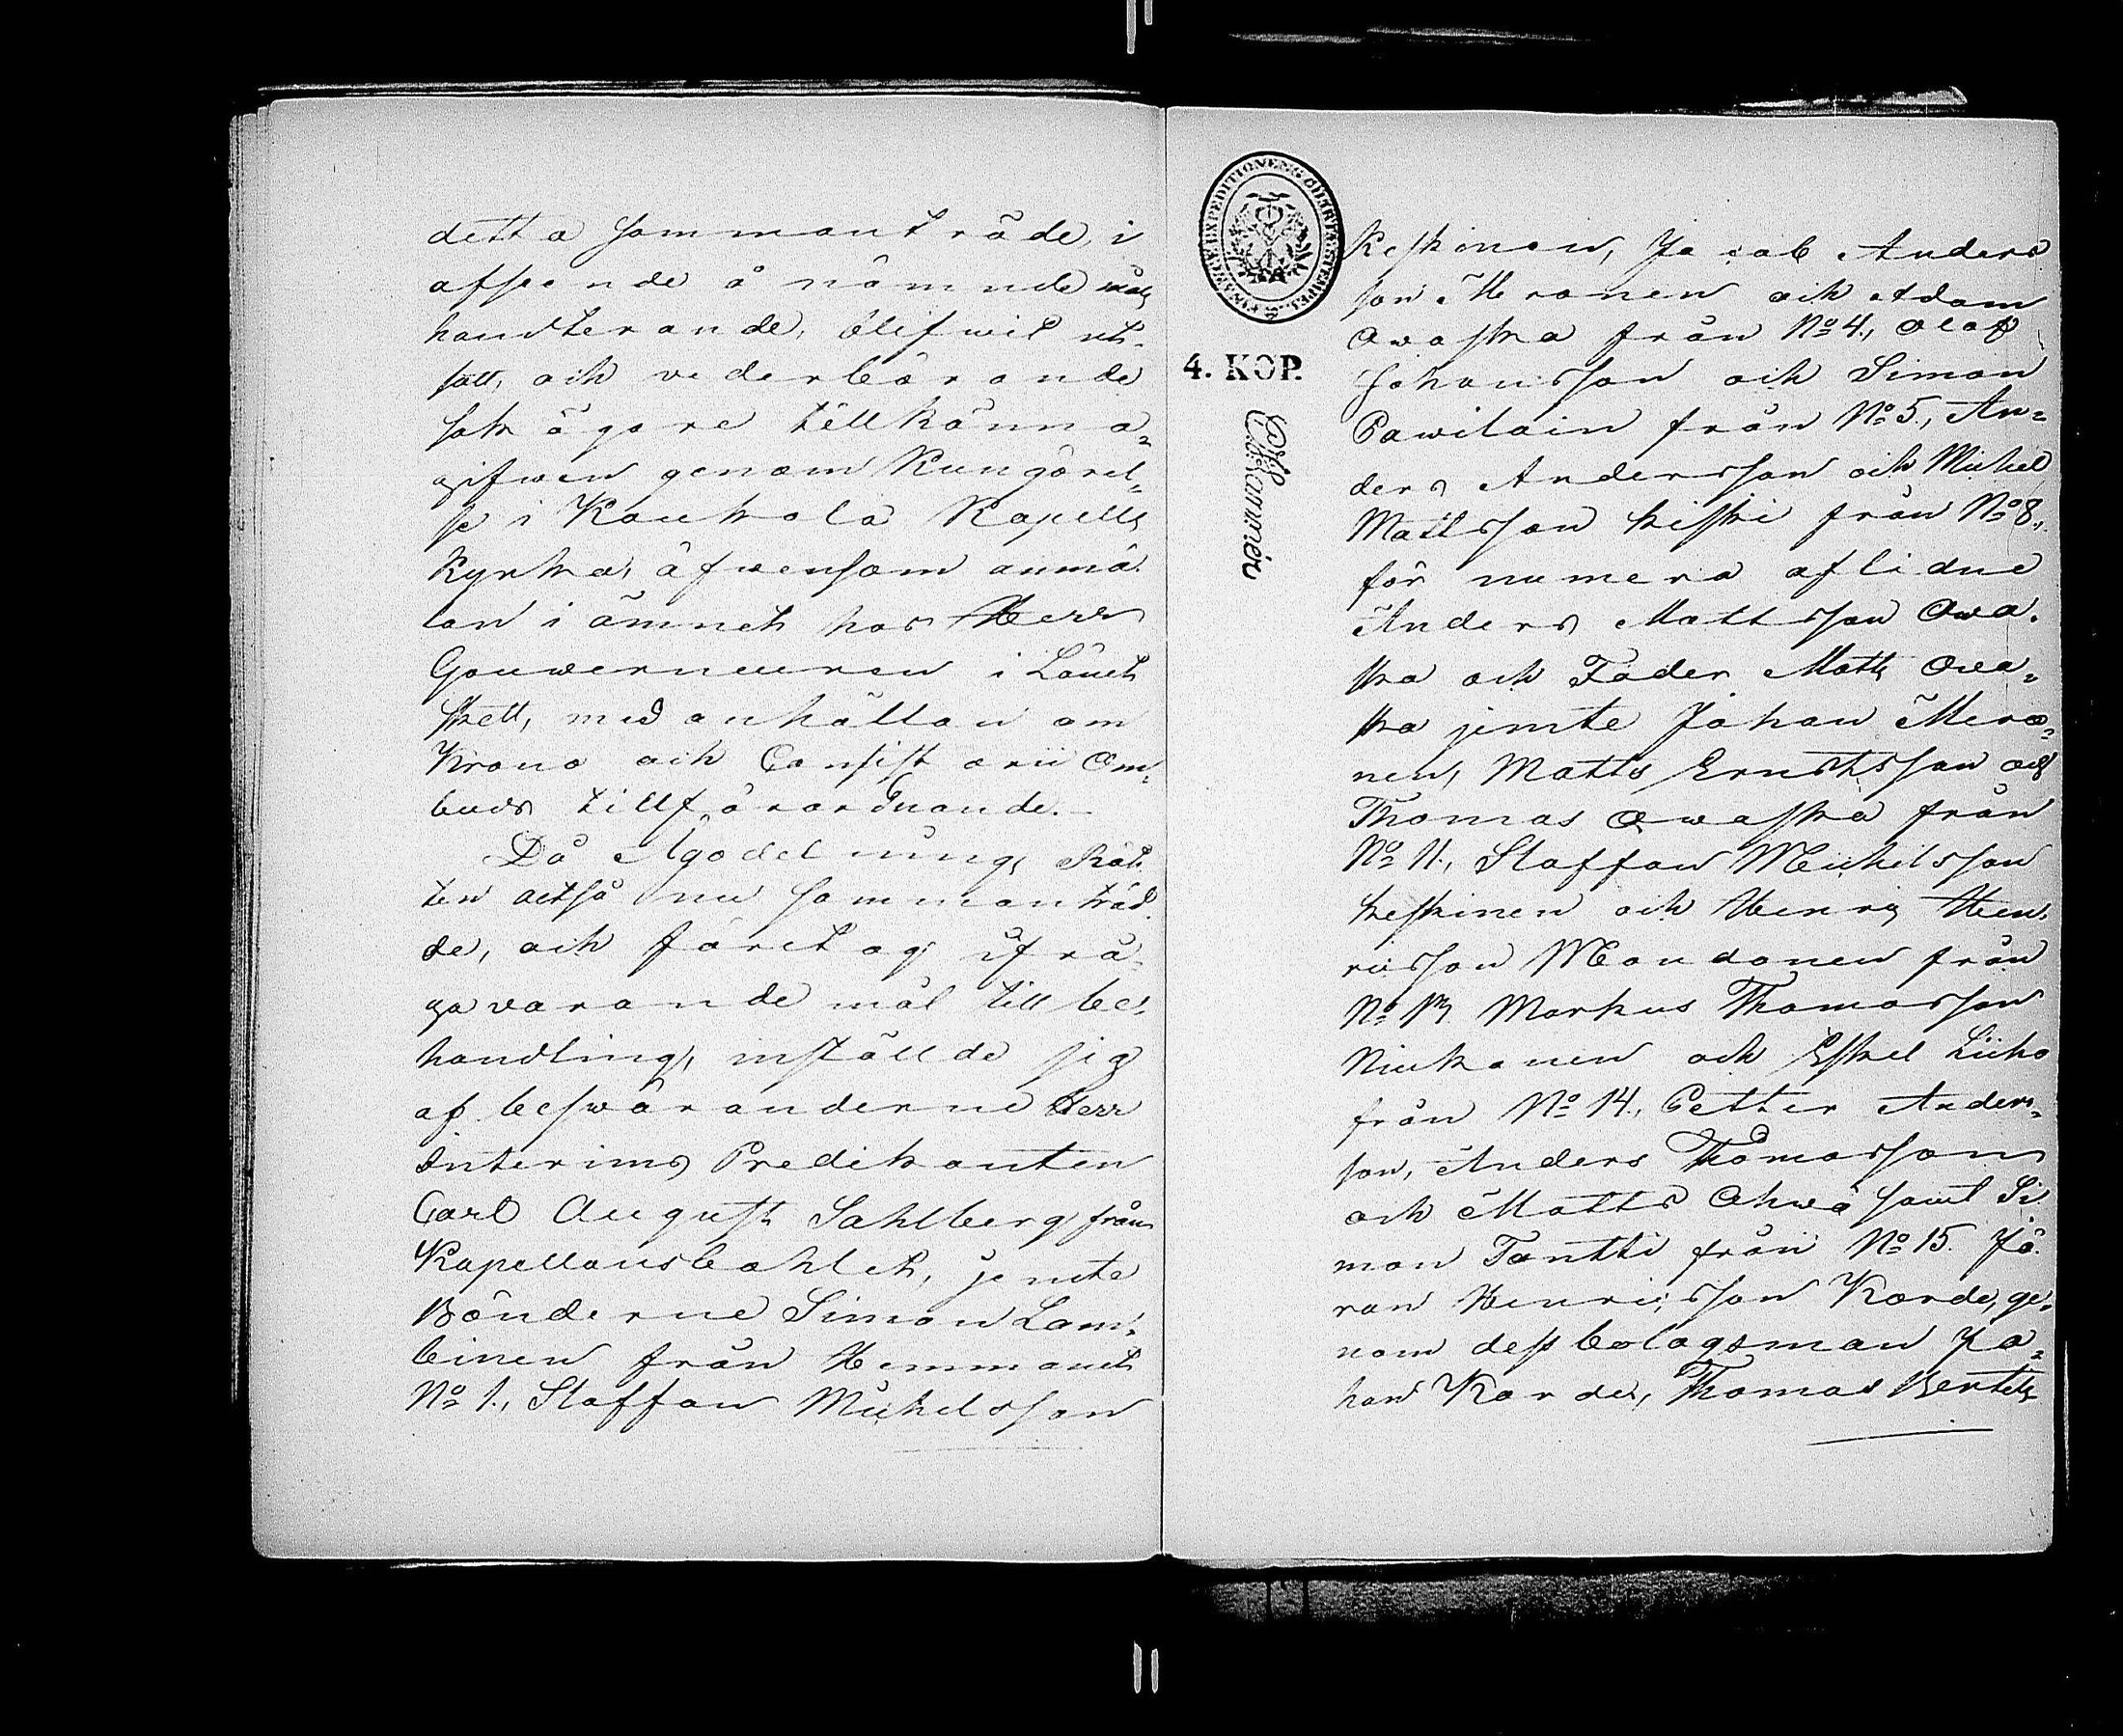 detta sammanträde, i
afseende å nämnde måls
handterande, blifwit ut-
satt, och vederbörande
sakägare tillkänna-
gifwen genom Kungörel-
se i Kaukola Kapells
Kyrka, äfwensom anmä-
lan i ämnet hos Herr
Gouverneuren i Länet
skett, med anhållan om
Krono och Consistorii Om-
buds tillförordnande.-
Då Ägodelnings Rät-
ten altså nu sammanträd-
de, och företog ifrå-
gavarande mål till be-
handling, inställde sig
af beswäranderne Herr
Interims Predikanten
Carl August Sahlberg från
Kapellansbohlet, jemte
Bönderne Simon Lam-
beinen från Hemmanet
No 1., Staffan Michelsson
FINANCE EXPEDITIONENS CHARTÆ STEMPEL
4. KOP.
Keskinen, Jacob Anders
son Meronen och Adam
Owaska från No 4., Olof
Johansson och Simon
Pawilain från No 5., An-
ders Andersson och Michel
Mattsson Kiski från No 8.,
för numera aflidne
Anders Mattsson Owa-
ska och Fader Matts Owa-
ska jemte Johan Mero-
nen, Matts Ernstsson och
Thomas Owaska från
No 11., Staffan Michelsson
Keskinen och Henrig Hen-
ricsson Mondonen från
No 13 Markus Thomasson
Niukanen och Eskel Liiho
från No 14., Petter Anders-
son, Anders Thomasson
och Matts Ahwo samt Si-
mon Tontti från No 15. Jö-
ran Henricsson Korde, ge-
nom dess bolagsman Jo-
han Korde, Thomas Bertels